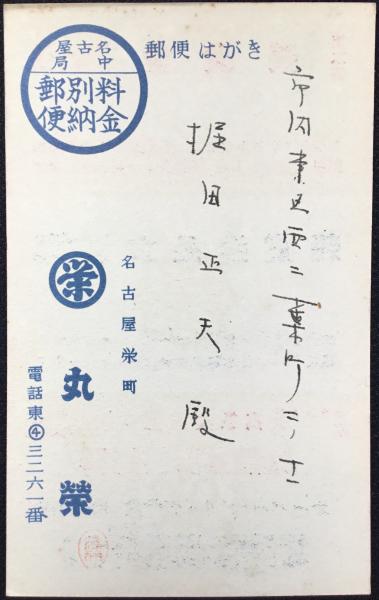 郵便はがき
名古屋中局
料金別納郵便
市内東区西二葉町二ノ十二
堀田正夫殿
名古屋栄町
栄
丸榮
電話東④三二六一番